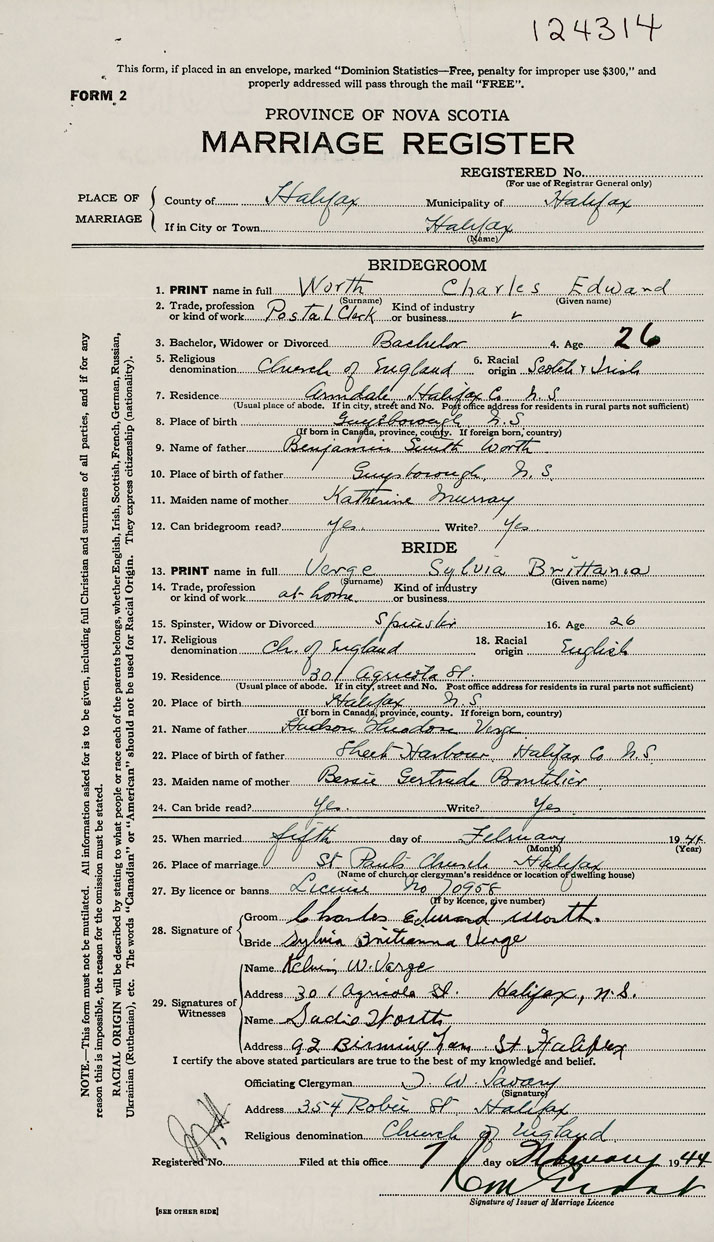 124314
This form, if placed in an envelope, marked "Dominion Statistics—Free, penalty for improper use $300," and
properly addressed will pass through the mail "FREE".
FORM 2
PROVINCE OF NOVA SCOTIA
MARRIAGE REGISTER
REGISTERED No.
(For use of Registrar General only)
PLACE OF MARRIAGE
County of Halifax Municipality of Halifax
If in City or Town Halifax
(Name)
BRIDEGROOM
1. PRINT name in full Worth Charles Edward
(Surname) (Given name)
2. Trade, profession or kind of work Postal Clerk Kind of industry or business
3. Bachelor, Widower or Divorced Bachelor 4. Age 26
5. Religious denomination Church of England 6. Racial origin Scotch & Irish
7. Residence Armdale Halifax Co N.S.
(Usual place of abode. If in city, street and No. Post office address for residents in rural parts not sufficient)
8. Place of birth Guysborough N.S.
(If born in Canada, province, county. If foreign born, country)
9. Name of father Benjamin Smith Worth
10. Place of birth of father Guysborough, N.S.
11. Maiden name of mother Katherine Murray
12. Can bridegroom read? Yes. Write? Yes
BRIDE
13. PRINT name in full Verge Sylvia Brittania
(Surname) (Given name)
14. Trade, profession or kind of work at home Kind of industry or business
15. Spinster, Widow or Divorced Spinster 16. Age 26
17. Religious denomination Ch. of England 18. Racial origin English
19. Residence 301 Agricola St.
(Usual place of abode. If in city, street and No. Post office address for residents in rural parts not sufficient)
20. Place of birth Halifax N.S.
(If born in Canada, province, county. If foreign born, country)
21. Name of father Hudson Theodore Verge
22. Place of birth of father Sheet Harbour, Halifax Co N.S.
23. Maiden name of mother Bessie Gertrude Boutilier
24. Can bride read? Yes. Write? Yes
25. When married fifth day of February 1944
(Month) (Year)
26. Place of marriage St Paul's Church Halifax
(Name of church or clergyman's residence or location of dwelling house)
27. By licence or banns License No 70958
(If by licence, give number)
28. Signature of
Groom Charles Edward Worth.
Bride Sylvia Britianna Verge
29. Signatures of Witnesses
Name W. Verge
Address 301 Agricola St. Halifax, N.S.
Name Sadie Worth
Address 92 Birmingham St Halifax
I certify the above stated particulars are true to the best of my knowledge and belief.
Officiating Clergyman W. Savary
(Signature)
Address 354 Robie St, Halifax
Religious denomination Church of England
Registered No. Filed at this office 7 day of February 1944
Signature of Issuer of Marriage Licence
[SEE OTHER SIDE]
NOTE.—This form must not be mutilated. All information asked for is to be given, including full Christian and surnames of all parties, and if for any
reason this is impossible, the reason for the omission must be stated.
RACIAL ORIGIN will be described by stating to what people or race each of the parents belongs, whether English, Irish, Scottish, French, German, Russian,
Ukrainian (Ruthenian), etc. The words "Canadian" or "American" should not be used for Racial Origin. They express citizenship (nationality).